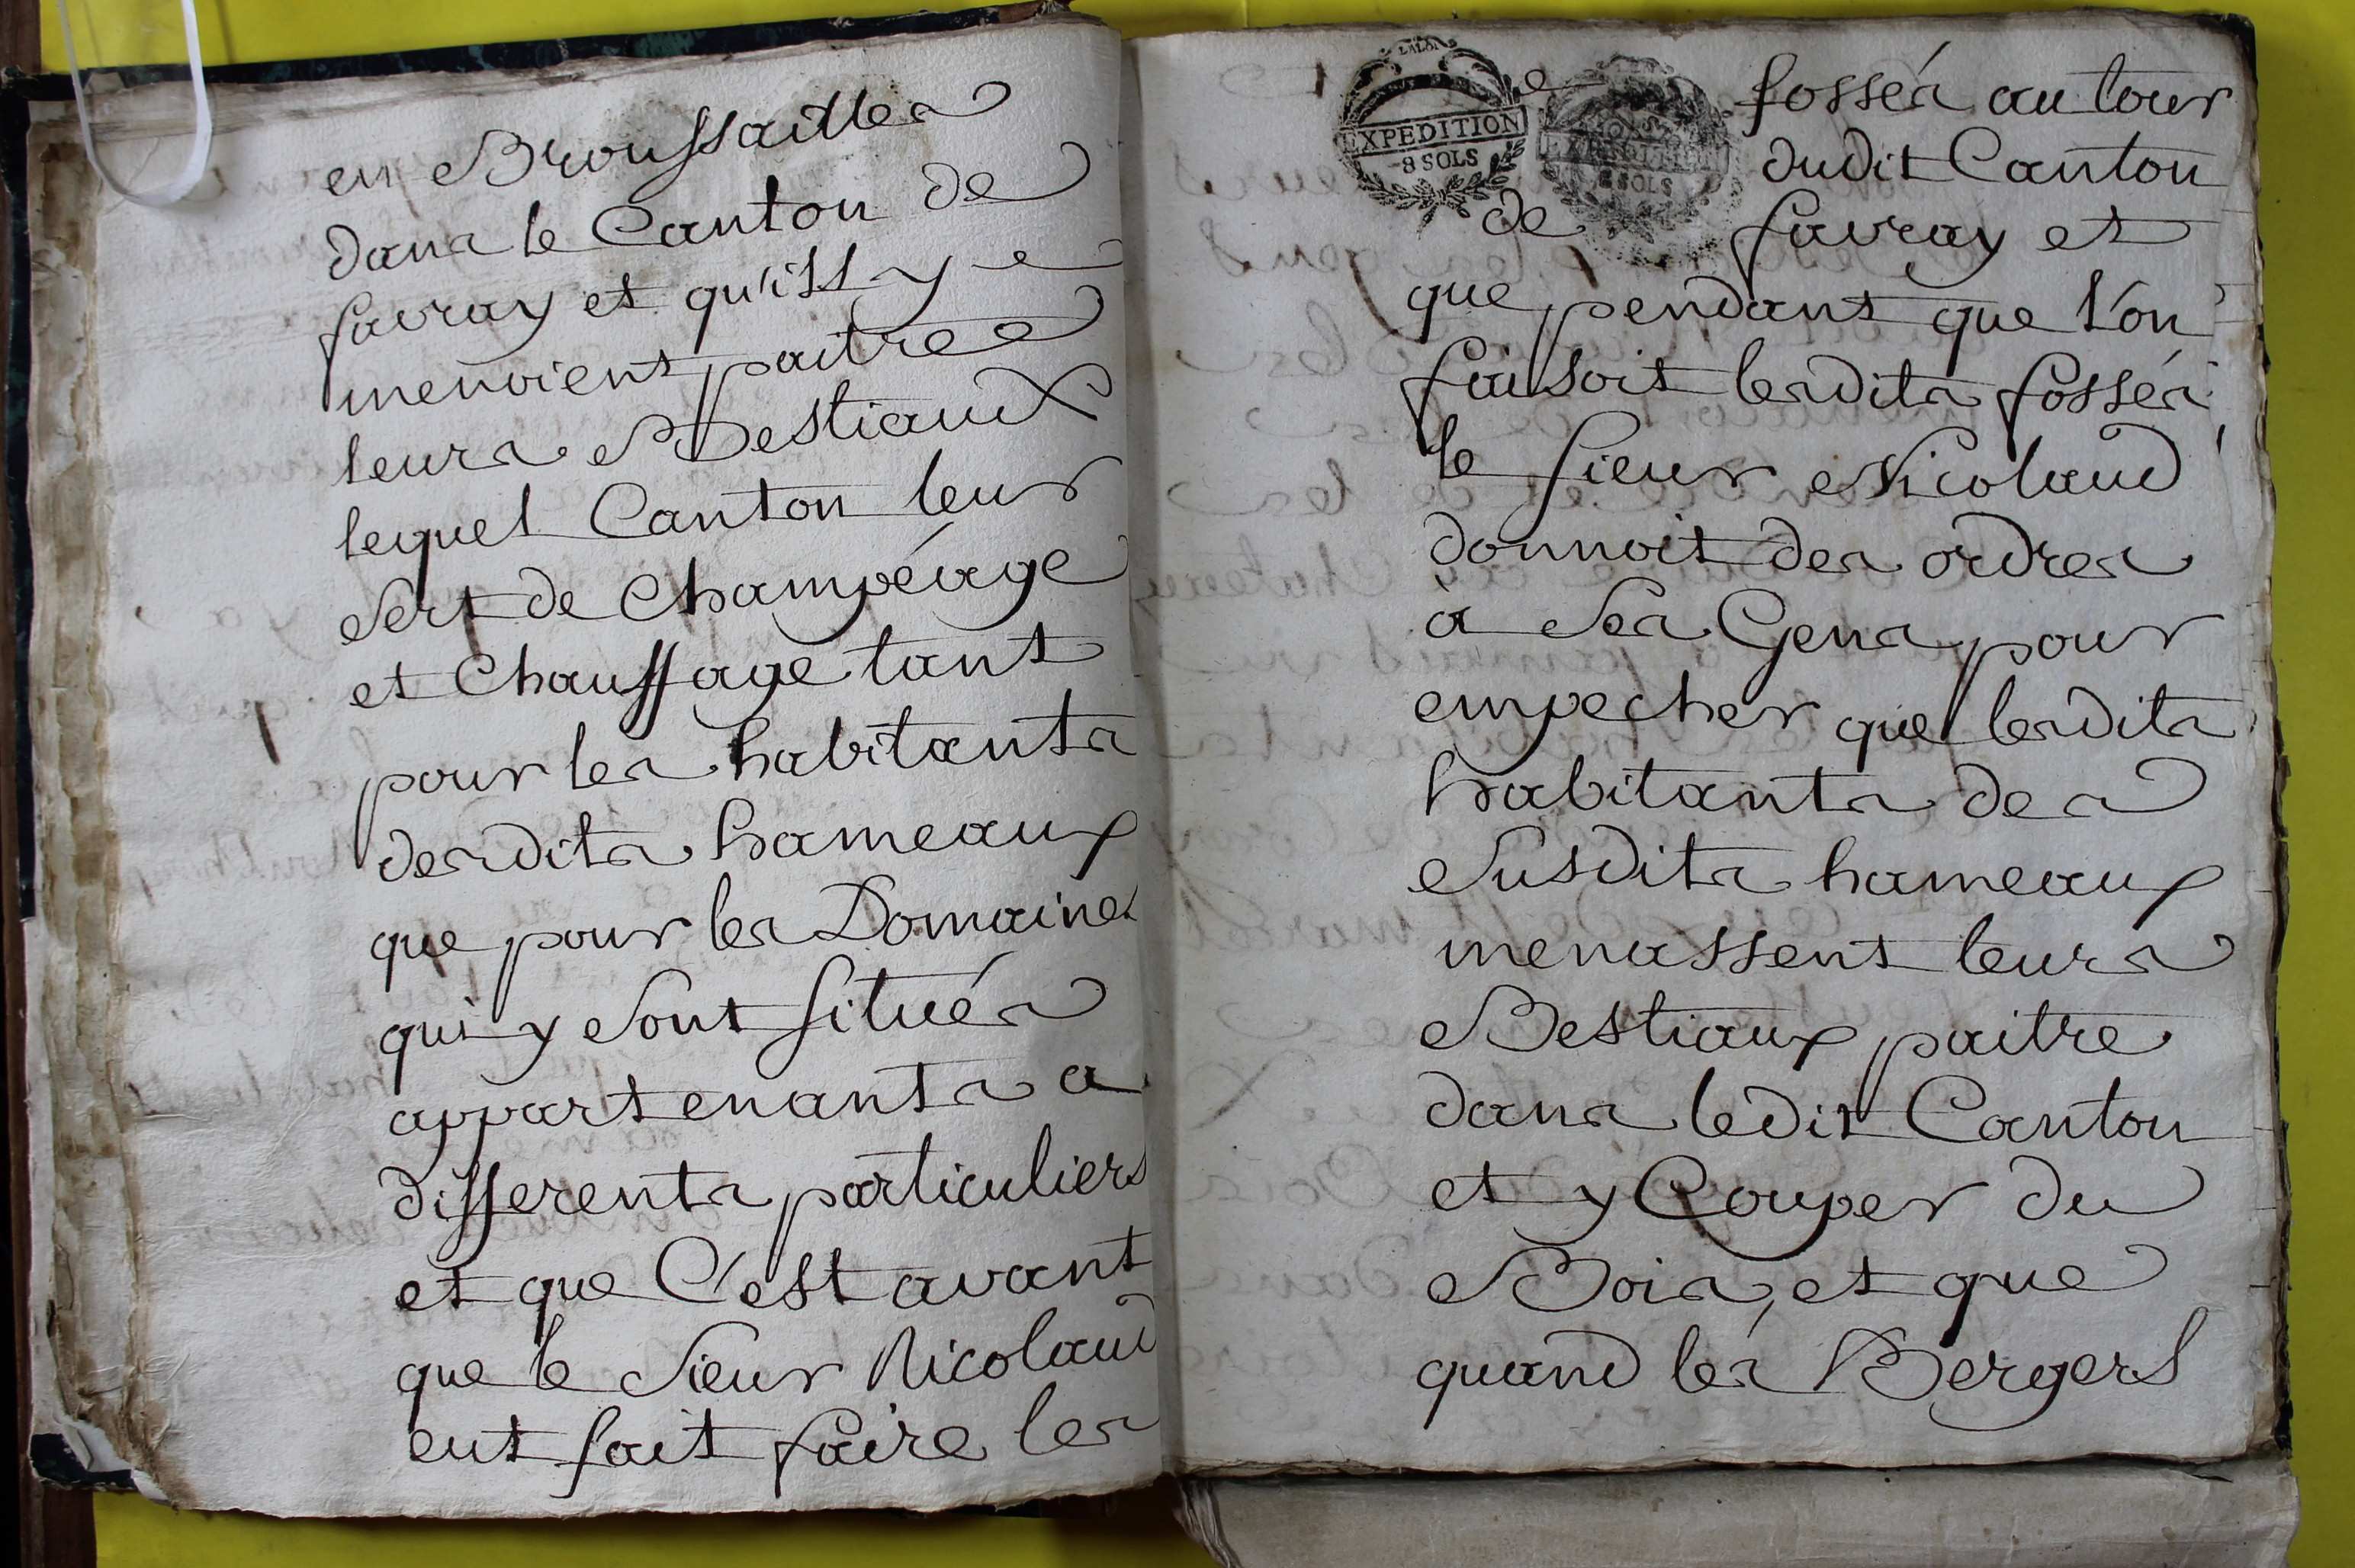 en Broussailles
dans le Canton de
favray et qu'ils y
menoient paitre
leurs Bestiaux
lequel Canton leur
sert de Champéage
et Chauffage tant
pour les habitants
desdits hameaux
que pour les Domaines
qui y sont situés
appartenants a
differents particuliers
et que C'est avant
que le sieur Nicolaud
eut fait faire les
EXPEDITION
8 SOLS
fossés autour
dudit Canton
de favray et
que pendant que l'on
faisoit lesdits fossés
le sieur Nicolaud
donnoit des ordres
à ses Gens pour
empecher que lesdits
habitants des
susdits hameaux
menassent leurs
Bestiaux paitre
dans ledit Canton
et y Couper du
Bois, et que
quand les Bergers